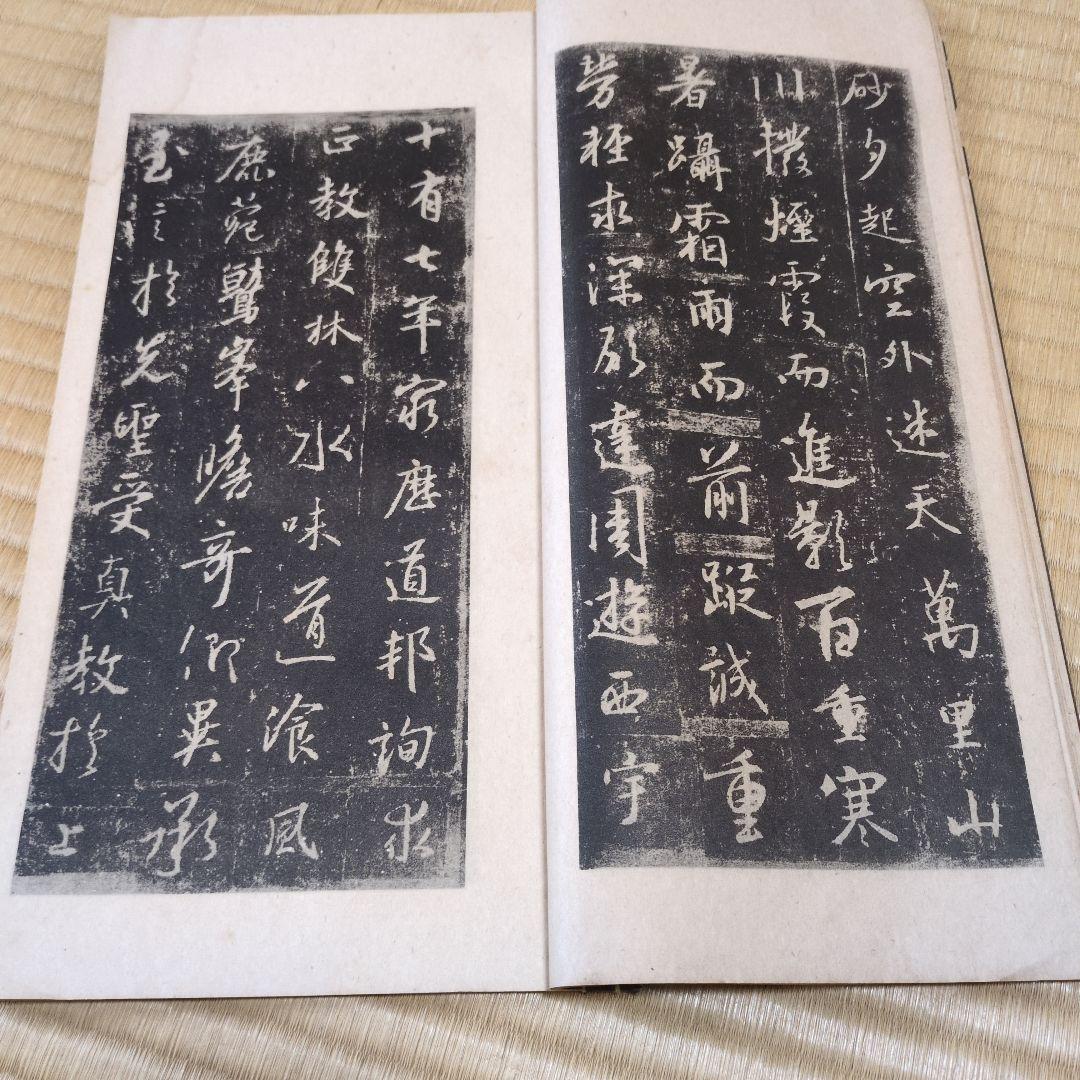 砂夕起空外迷天萬里山
川撥煙霞而進影百重寒
暑躡霜雨而前蹤誠重
勞輕求深願達周遊西宇
十有七年窮歷道邦詢求
正教雙林八水味道飡風
鹿菀鷲峯瞻奇仰異承
至言於先聖受真教於上